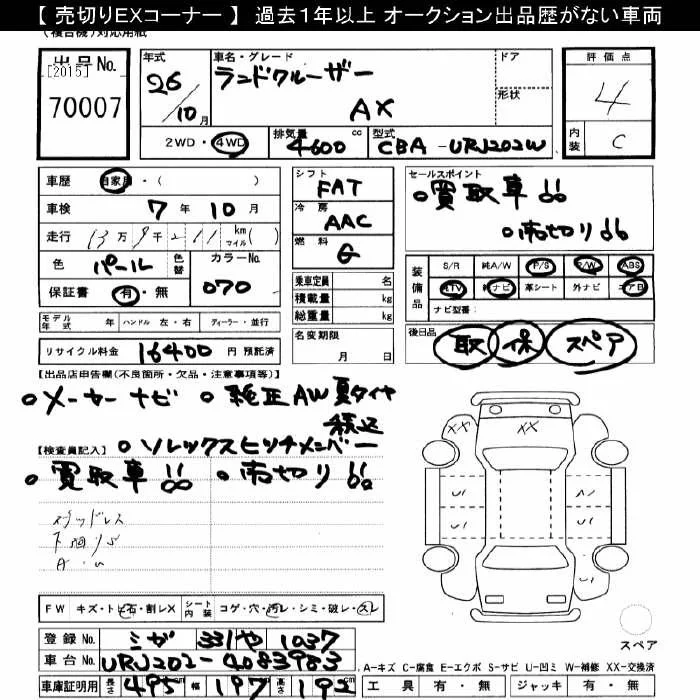 【 売切りEXコーナー 】 過去1年以上 オークション出品歴がない車両
(複合機)対応用紙
出品No.
[2015]
70007
年式
26/10月
車名・グレード
ランドクルーザー
AX
ドア
形状
評価点
4
内装 C
2WD・4WD
排気量 4600 cc
型式 CBA-URJ202W
車歴 自家用・( )
車検 7年10月
走行 13万9千211 km マイル( )
色 パール 色替 カラーNo. 070
保証書 有・無
モデル年式 年 ハンドル 左・右 ディーラー・並行
リサイクル料金 16400 円 預託済
シフト FAT
冷房 AAC
燃料 G
乗車定員 名
積載量 kg
総重量 kg
名変期限
月 日
セールスポイント
・買取車!!
・売切り!!
装備品
S/R 純A/W P/S P/W ABS
純TV 純ナビ 革シート 外ナビ エアB
ナビ型番:
後日品
取 保 スペア
【出品店申告欄(不良箇所・欠品・注意事項等)】
・メーカーナビ ・純正AW夏タイヤ
積込
・ソレックスヒッチメンバー
【検査員記入】
・買取車!! ・売切り!!
スタッドレス
下廻りS
A・U
XX
XX
U
U
U
U
FW キズ・トビ石・割レX シート内装 コゲ・穴・汚レ・シミ・破レ・スレ
スペア
登録No. ミガ 331や 1037
車台No. URJ202-4083983
車庫証明用 長さ 495 幅 197 高さ 192 cm
A-キズ C-腐食 E-エクボ S-サビ U-凹ミ W-補修 XX-交換済
工具 有・無 ジャッキ 有・無